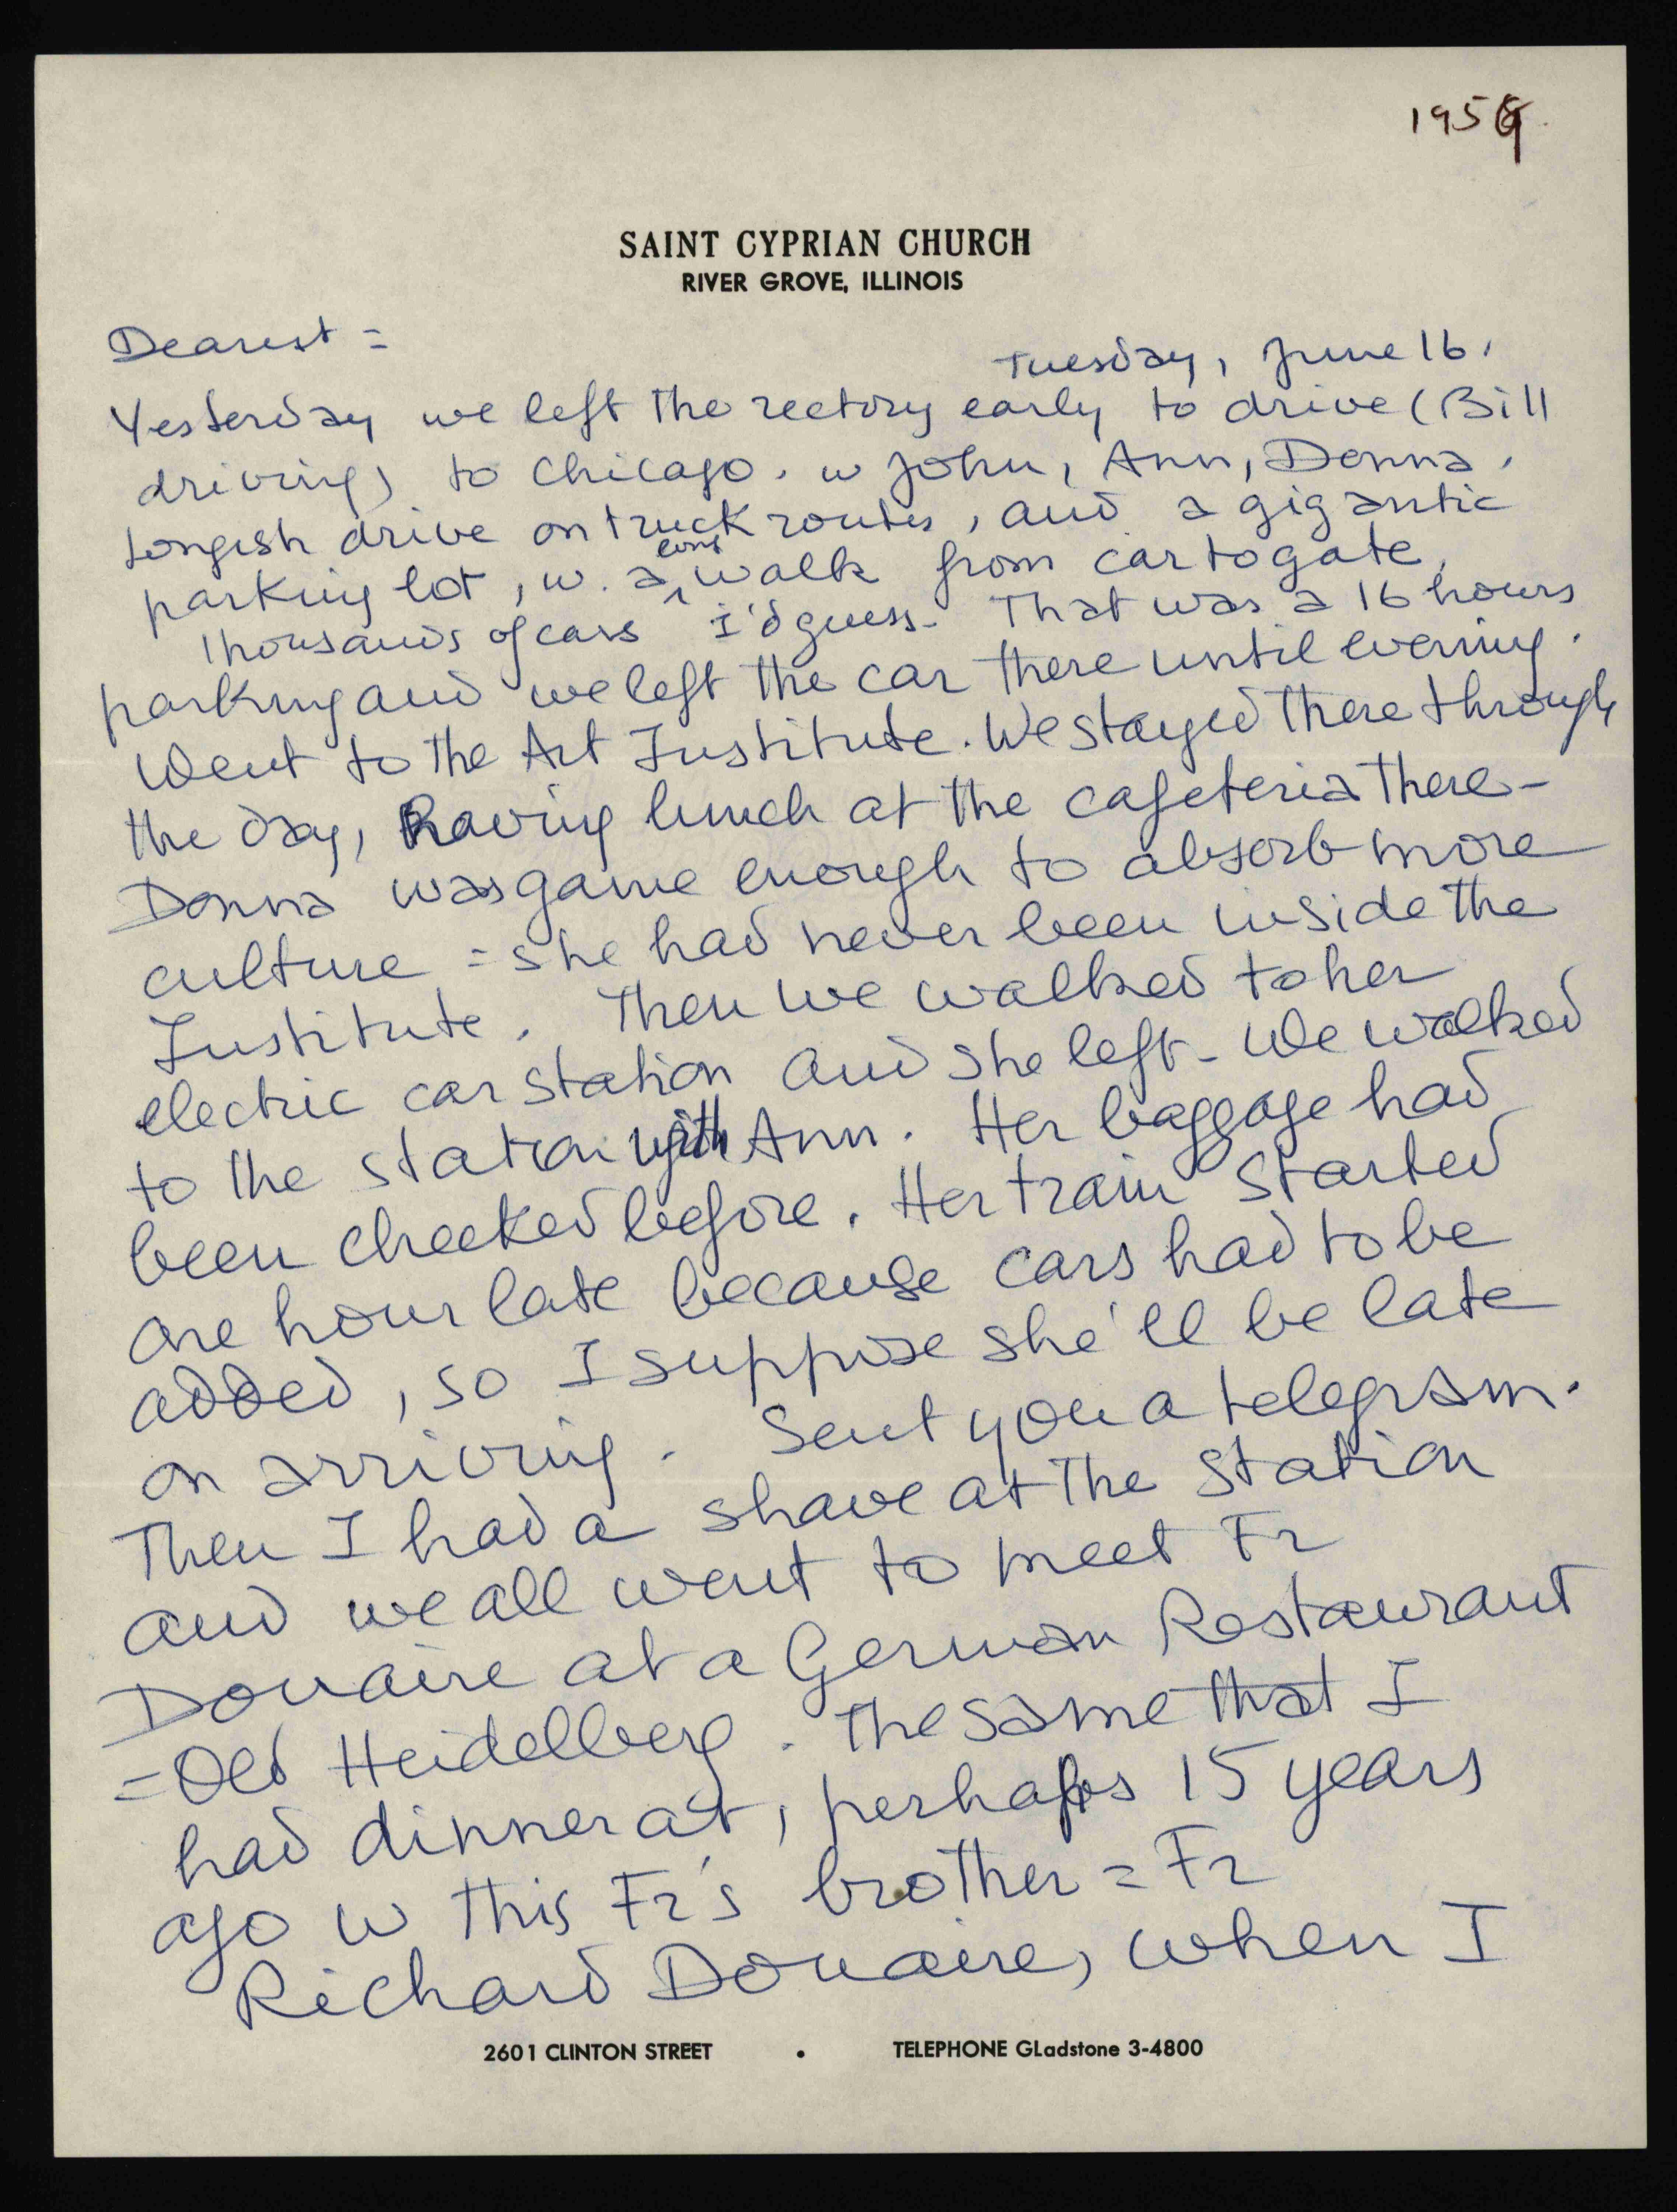 1959.
SAINT CYPRIAN CHURCH
RIVER GROVE, ILLINOIS
Dearest =
Tuesday, June 16.
Yesterday we left the rectory early to drive (Bill
driving) to Chicago. w John, Ann, Donna.
Longish drive on truck routes, and a gigantic
parking lot, w. a long walk from car to gate,
Thousands of cars I'd guess - That was a 16 hours
parking and we left the car there until evening.
Went to the Art Institute. We stayed there through
the day, having lunch at the cafeteria there -
Donna was game enough to absorb more
culture = she had never been inside the
Institute. Then we walked to her
electric car station and she left - We walked
to the station with Ann. Her baggage had
been checked before. Her train started
one hour late because cars had to be
added, so I suppose she'll be late
on arriving. Sent you a telegram.
Then I had a shave at the station
and we all went to meet Fr
Douaire at a German Restaurant
= Old Heidelberg. The same that I
had dinner at, perhaps 15 years
ago w this Fr's brother = Fr
Richard Douaire, when I
2601 CLINTON STREET • TELEPHONE GLadstone 3-4800